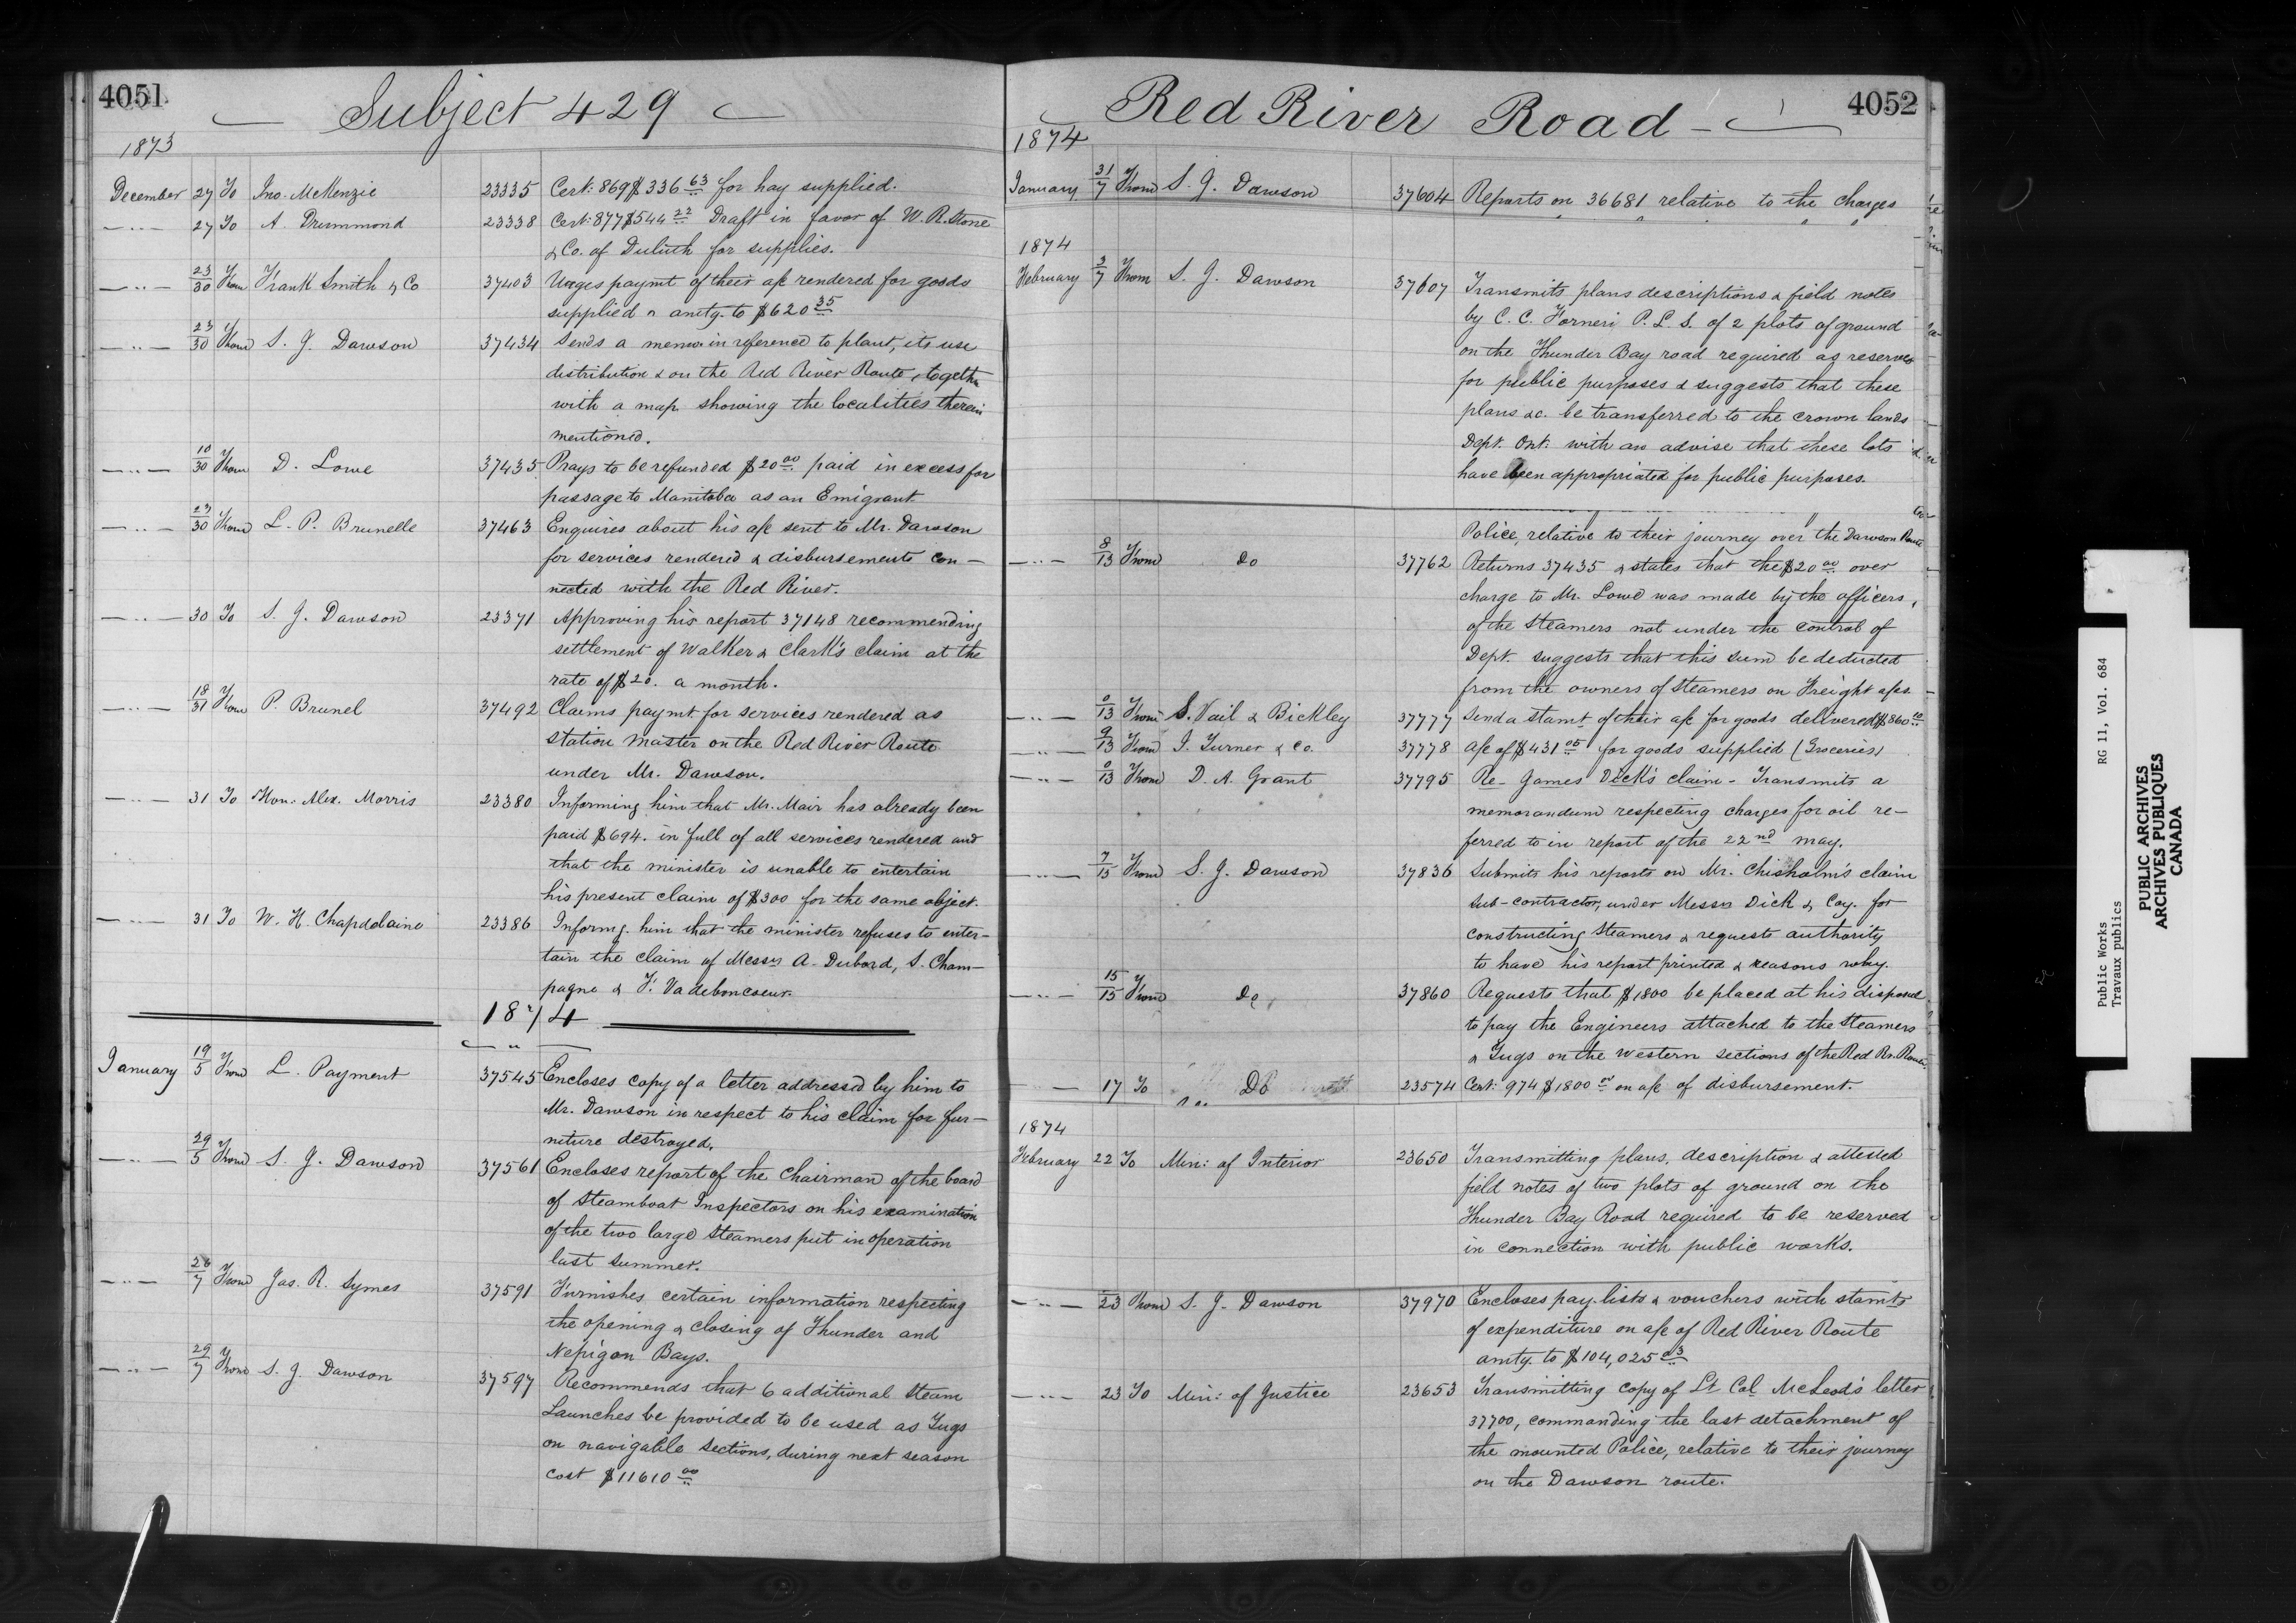 4051
Subject 429
1873
December 27 To Jno. McKenzie 23335 Cert: 869 $336 63 for hay supplied.
— " — 27 To A. Drummond 23338 Cert: 877 $544 22 Draft in favor of W. R. Stone
& Co. of Duluth for supplies.
— " — 23/30 From Frank Smith & Co 37403 Urges paymt of their a/c rendered for goods
supplied & amtg. to $620 35
— " — 23/30 From S. J. Dawson 37434 Sends a memo in reference to plant, its use
distribution & on the Red River Route, together
with a map showing the localities therein
mentioned.
— " — 10/30 From D. Lowe 37435 Prays to be refunded $20 00 paid in excess for
passage to Manitoba as an Emigrant
— " — 27/30 From L. P. Brunelle 37463 Enquires about his a/c sent to Mr. Dawson
for services rendered & disbursements con—
nected with the Red River.
— " — 30 To S. J. Dawson 23371 Approving his report 37148 recommending
settlement of Walker & Clark's claim at the
rate of $20. a month.
— " — 18/31 From P. Brunel 37492 Claims paymt for services rendered as
station Master on the Red River Route
under Mr. Dawson.
— " — 31 To Hon: Alex. Morris 23380 Informing him that Mr. Mair has already been
paid $694. in full of all services rendered and
that the minister is unable to entertain
his present claim of $300 for the same object.
— " — 31 To W. H. Chapdelaine 23386 Informg. him that the minister refuses to enter—
tain the claim of Messrs A. Dubord, S. Cham—
pagne & F. Vadeboncoeur.
1874
— " —
January 19/5 From L. Payment 37545 Encloses copy of a letter addressed by him to
Mr. Dawson in respect to his claim for fur—
niture destroyed.
— " — 29/5 From S. J. Dawson 37561 Encloses report of the Chairman of the board
of Steamboat Inspectors on his examination
of the two large Steamers put in operation
last summer.
— " — 26/7 From Jas. R. Symes 37591 Furnishes certain information respecting
the opening & closing of Thunder and
Nepigon Bays.
— " — 29/7 From S. J. Dawson 37597 Recommends that 6 additional Steam
Launches be provided to be used as Tugs
on navigable sections, during next season
cost $11610 00
4052
Red River Road
1874
January 31/7 From S. J. Dawson 37604 Reports on 36681 relative to the charges
1874
February 3/7 From S. J. Dawson 37607 Transmits plans descriptions & field notes
by C. C. Forneri P. L. S. of 2 plots of ground
on the Thunder Bay road required as reserves
for public purposes & suggests that these
plans &c. be transferred to the crown lands
Dept. Ont: with an advise that these lots
have been appropriated for public purposes.
Police, relative to their journey over the Dawson Route
— " — 8/13 From Do 37762 Returns 37435 & states that the $20 00 over
charge to Mr. Lowe was made by the officers,
of the Steamers not under the control of
Dept. suggests that this sum be deducted
from the owners of Steamers on Freight a/cs.
— " — 0/13 From S. Vail & Bickley 37777 Send a stamt of their a/c for goods delivered $860 10
— " — 9/13 From J. Turner & Co. 37778 a/c of $431 05 for goods supplied (Groceries)
— " — 0/13 From D. A. Grant 37795 Re- James Dick's claim - Transmits a
memorandum respecting charges for oil re—
ferred to in report of the 22nd may.
— " — 7/15 From S. J. Dawson 37836 Submits his reports on Mr. Chisholm's claim
sub-contractor, under Messrs Dick & Coy. for
constructing Steamers & requests authority
to have his report printed & reasons why.
— " — 15/15 From Do 37860 Requests that $1800 be placed at his disposal
to pay the Engineers attached to the Steamers
& Tugs on the Western sections of the Red Rr. Route.
— 17 To Do 23574 Cert: 974 $1800 00 on a/c of disbursement.
1874
February 22 To Min: of Interior 23650 Transmitting plans, description & attested
field notes of two plots of ground on the
Thunder Bay Road required to be reserved
in connection with public works.
— " — 23 From S. J. Dawson 37970 Encloses pay-lists & vouchers with stamts
of expenditure on a/c of Red River Route
amtg. to $104,025 03
— " — 23 To Min: of Justice 23653 Transmitting copy of Lt Col McLeod's letter
37700, commanding the last detachment of
the mounted Police, relative to their journey
on the Dawson route.
Public Works RG 11, Vol. 684
Travaux publics
PUBLIC ARCHIVES
ARCHIVES PUBLIQUES
CANADA